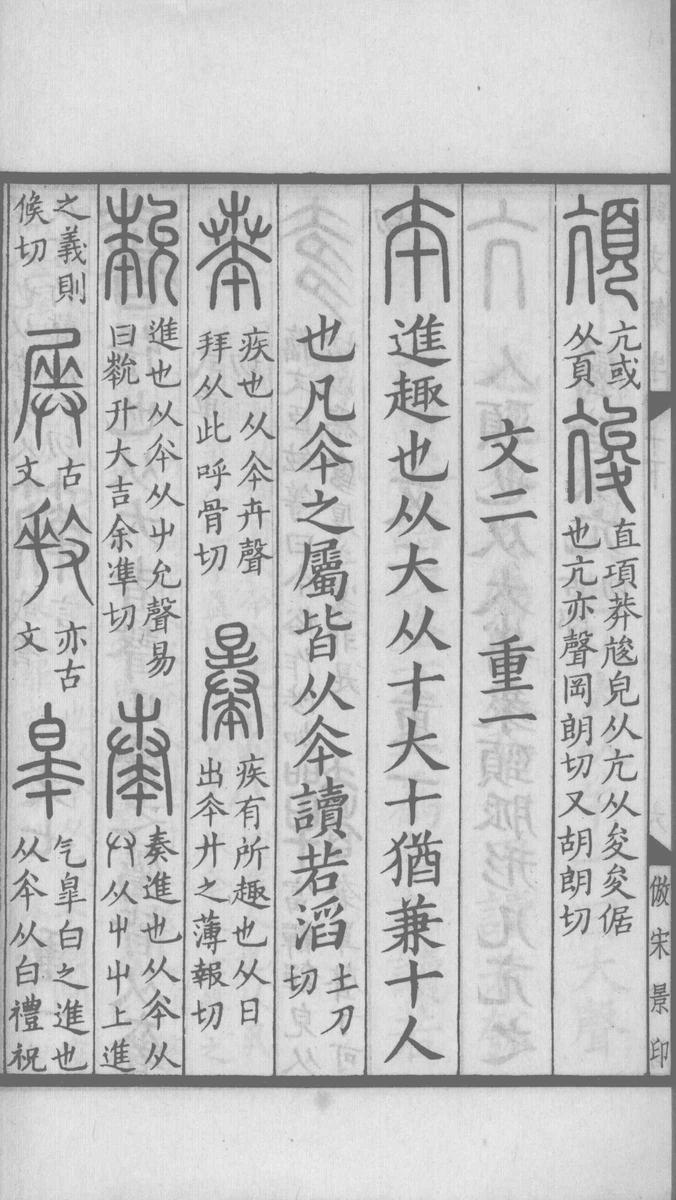 倣宋景印
頏
亢或
从頁
𡕮
直項莽㚇皃从亢从夋夋倨
也亢亦聲岡朗切又胡朗切
文二 重一
夲 進趣也从大从十大十猶兼十人
也凡夲之屬皆从夲讀若滔
土刀
切
𠦪
疾也从夲卉聲
拜从此呼骨切
㬥
疾有所趣也从日
出夲廾之薄報切
𡴞
進也从夲从屮允聲易
曰𡴞升大吉余凖切
奏
奏進也从夲从
𠬞从屮屮上進
之義則
候切
㞸
古
文
𢾅
亦古
文
皋
气皐白之進也
从夲从白禮祝